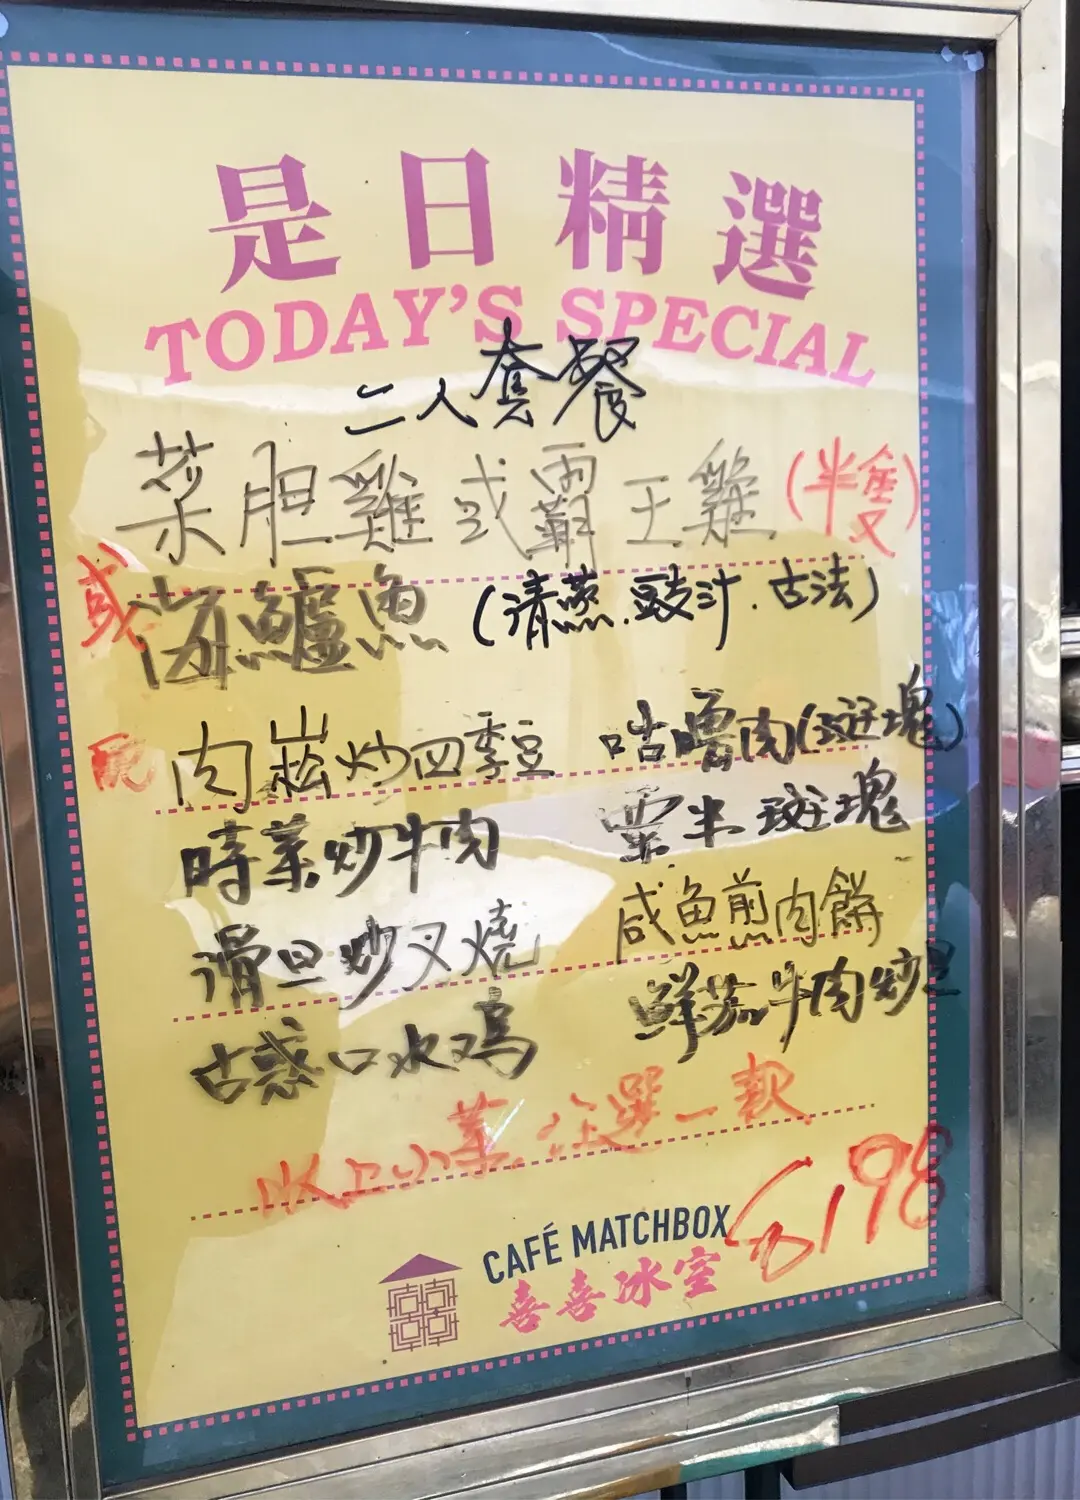 是日精選
TODAY'S SPECIAL
二人套餐
菜胆雞或霸王雞(半隻)
或海鱸魚(清蒸.豉汁.古法)
肉崧炒四季豆 咕嚕肉(斑塊)
時菜炒牛肉 粟米斑塊
滑旦炒叉燒 咸魚煎肉餅
古惑口水鸡 鮮茄牛肉炒旦
以上小菜任選一款
$198
CAFÉ MATCHBOX
喜喜冰室